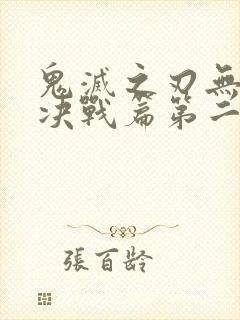 鬼滅之刃無
决戰篇第二
張百齡